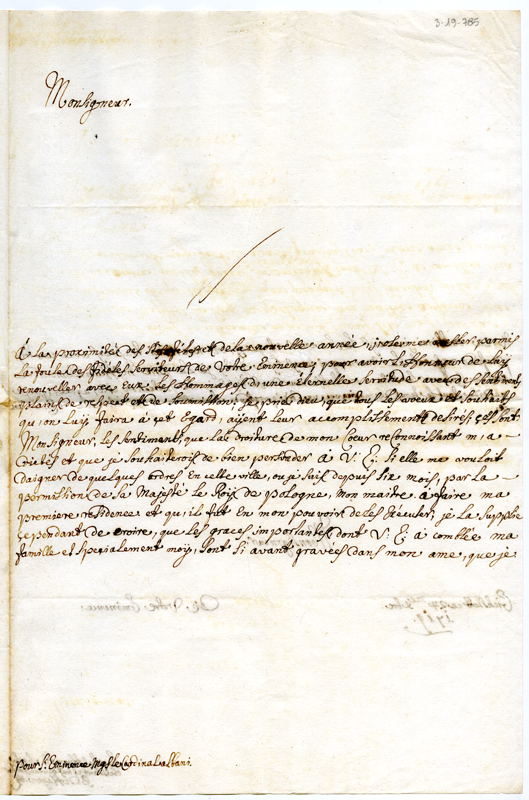 3-19-785
Monsigneur.
À la proximité des Stes fêtes et de la nouvelle année, j'ose me mesler parmis
la foule des fideles serviteurs de Votre Eminence, pour avoir l'Honneur de luy
renouveller avec eux, les Hommages d'une eternelle servitude avec des sentimens
plains de respect et de soumission; je prie Dieu, que tous les voeux et souhaits
qu'on luy faira à cet Egard, ayent leur acomplissement desiré; ces sont
Monsigneur, les sentiments, que la droiture de mon Coeur reconnoissant m'a
dictés et que je souhaiterois de bien persuader à V: E: si elle me vouloit
daigner de quelques ordres en cette ville, ou je suis depuis six mois, par la
permission de sa Majesté le Roix de pologne, mon maitre à faire ma
premiere residence et qu'il fut en mon pouvoir de les Executer; je la supplie
cependant de croire, que les graces importantes dont V: E: a comblée ma
famille et specialement moy, sont si avant gravées dans mon ame, que je
pour S: Eminence Mgr le Cardinal albani.